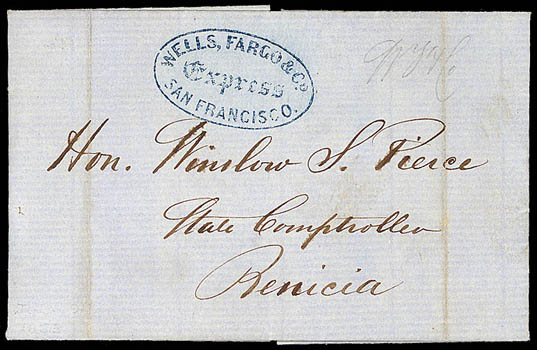 WELLS, FARGO & Co.
Express
SAN FRANCISCO.
Hon. Winslow S. Pierce
State Comptroller
Benicia